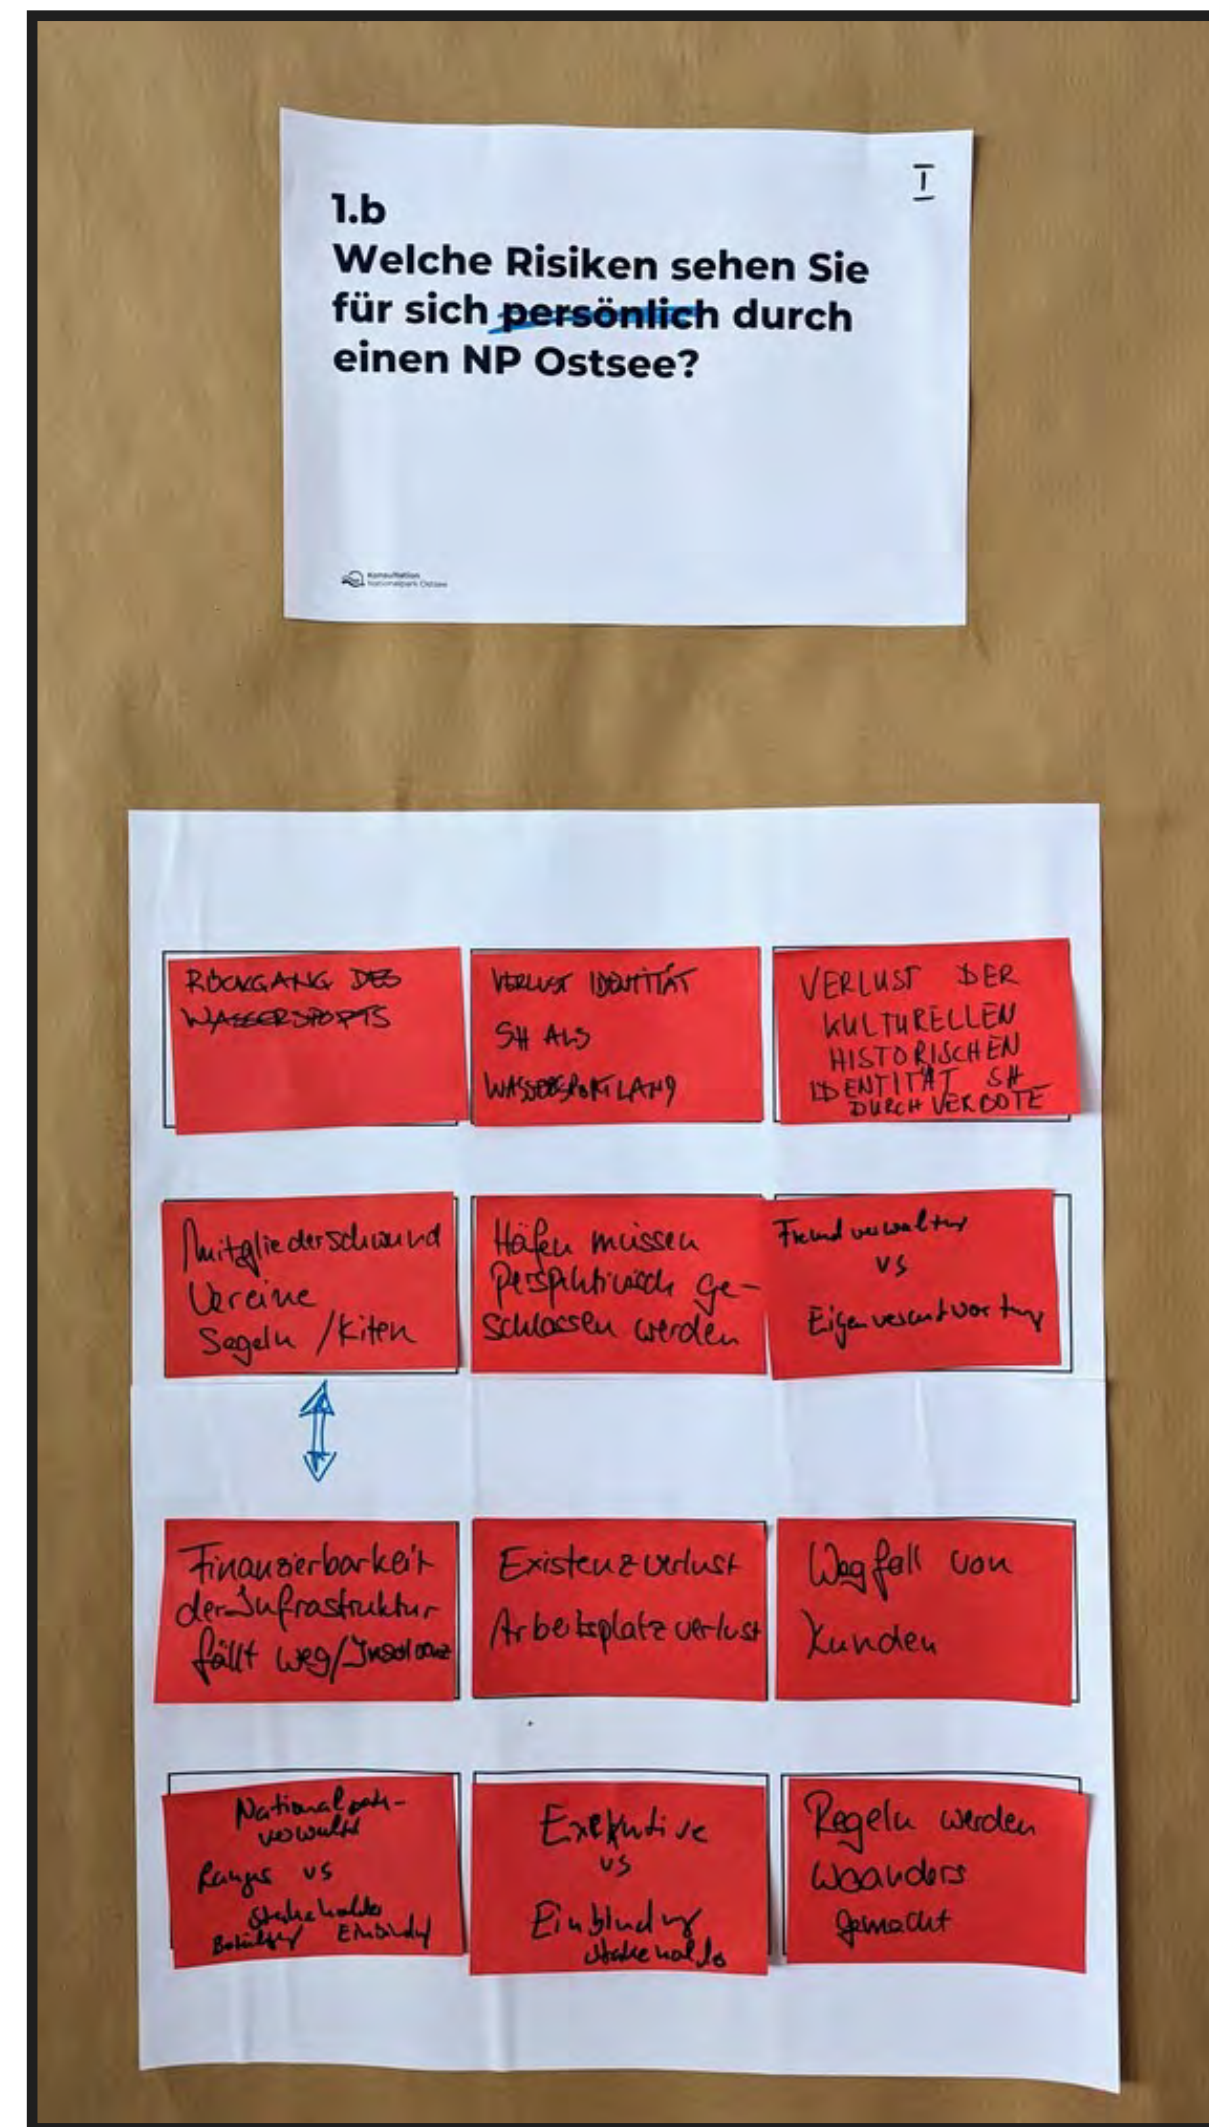 I
1.b
Welche Risiken sehen Sie
für sich persönlich durch
einen NP Ostsee?
Konsultation
Nationalpark Ostsee
RÜCKGANG DES
WASSERSPORTS
VERLUST IDENTITÄT
SH ALS
WASSERSPORTLAND
VERLUST DER
KULTURELLEN
HISTORISCHEN
IDENTITÄT SH
DURCH VERBOTE
Mitgliederschwund
Vereine
Segeln / Kiten
Häfen müssen
perspektivisch ge-
schlossen werden
Fremdverwaltung
vs
Eigenverantwortung
Finanzierbarkeit
der Infrastruktur
fällt weg/Insolvenz
Existenzverlust
Arbeitsplatzverlust
Wegfall von
Kunden
Nationalpark-
Ranger vs
Stakeholder
Einbindung
Exekutive
vs
Einbindung
Stakeholder
Regeln werden
woanders
gemacht